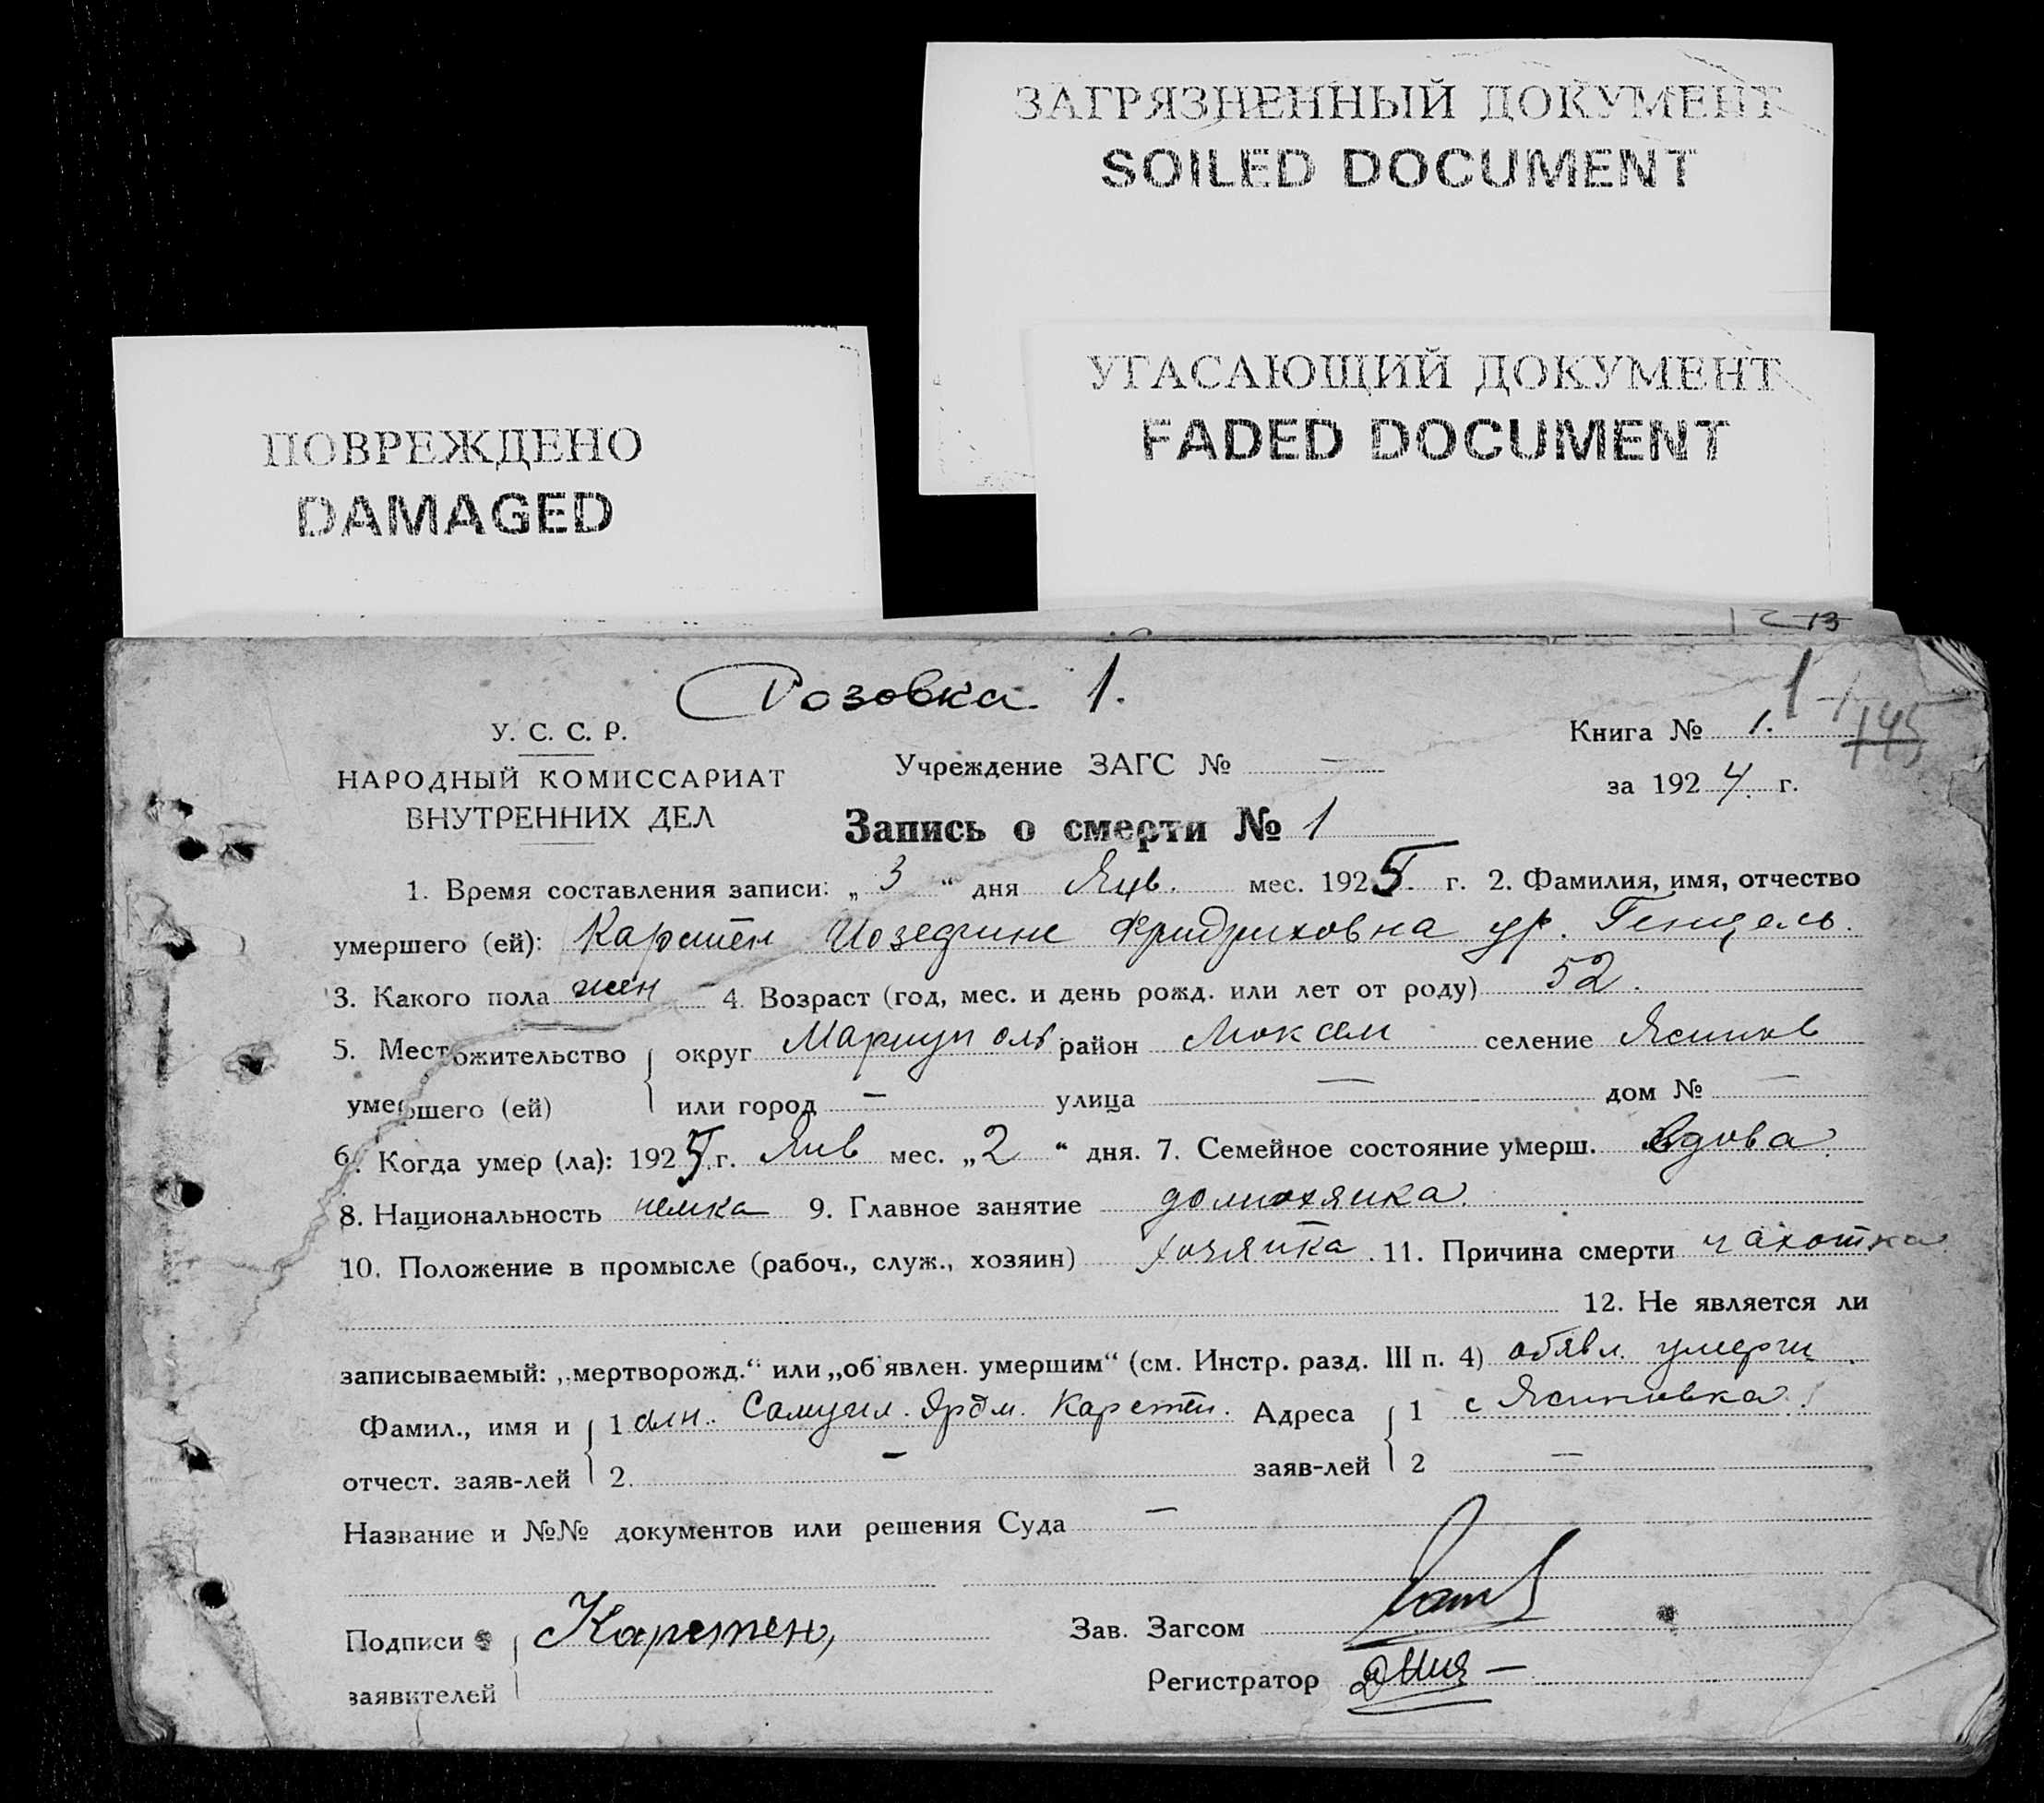 ЗАГРЯЗНЕННЫЙ ДОКУМЕНТ
SOILED DOCUMENT
УГАСАЮЩИЙ ДОКУМЕНТ
FADED DOCUMENT
ПОВРЕЖДЕНО
DAMAGED
13
Розовка 1.
1
145
У. С. С. Р.
НАРОДНЫЙ КОМИССАРИАТ
ВНУТРЕННИХ ДЕЛ
Учреждение ЗАГС № —
Книга № 1.
за 1924 г.
Запись о смерти № 1
1. Время составления записи: „ 3 “ дня Янв. мес. 1925 г. 2. Фамилия, имя, отчество
умершего (ей): Карстен Иозефине Фридриховна ур. Генцель.
3. Какого пола жен 4. Возраст (год, мес. и день рожд. или лет от роду) 52.
5. Местожительство округ Мариуполь район Люксем селение Ясинов
умершего (ей) или город — улица — дом № —
6. Когда умер (ла): 1925 г. Янв мес. „ 2 “ дня. 7. Семейное состояние умерш. Вдова.
8. Национальность немка 9. Главное занятие домохяика.
10. Положение в промысле (рабоч., служ., хозяин) хозяика 11. Причина смерти чахотка
12. Не является ли
записываемый: „мертворожд.“ или „об'явлен. умершим“ (см. Инстр. разд. III п. 4) обявл. умерш.
Фамил., имя и 1 Самуил. Карстен. Адреса 1 с Ясиновка.
отчест. заяв-лей 2. — заяв-лей 2 —
Название и №№ документов или решения Суда —
Подписи Карстен, Зав. Загсом
заявителей Регистратор